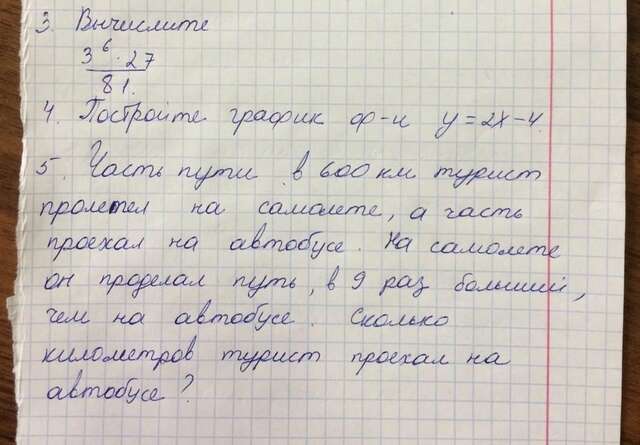 3. Вычислите
3⁶ · 27
81.
4. Постройте график ф-и y = 2x – 4.
5. Часть пути в 600 км турист
пролетел на самолете, а часть
проехал на автобусе. На самолете
он проделал путь, в 9 раз больший,
чем на автобусе. Сколько
километров турист проехал на
автобусе?